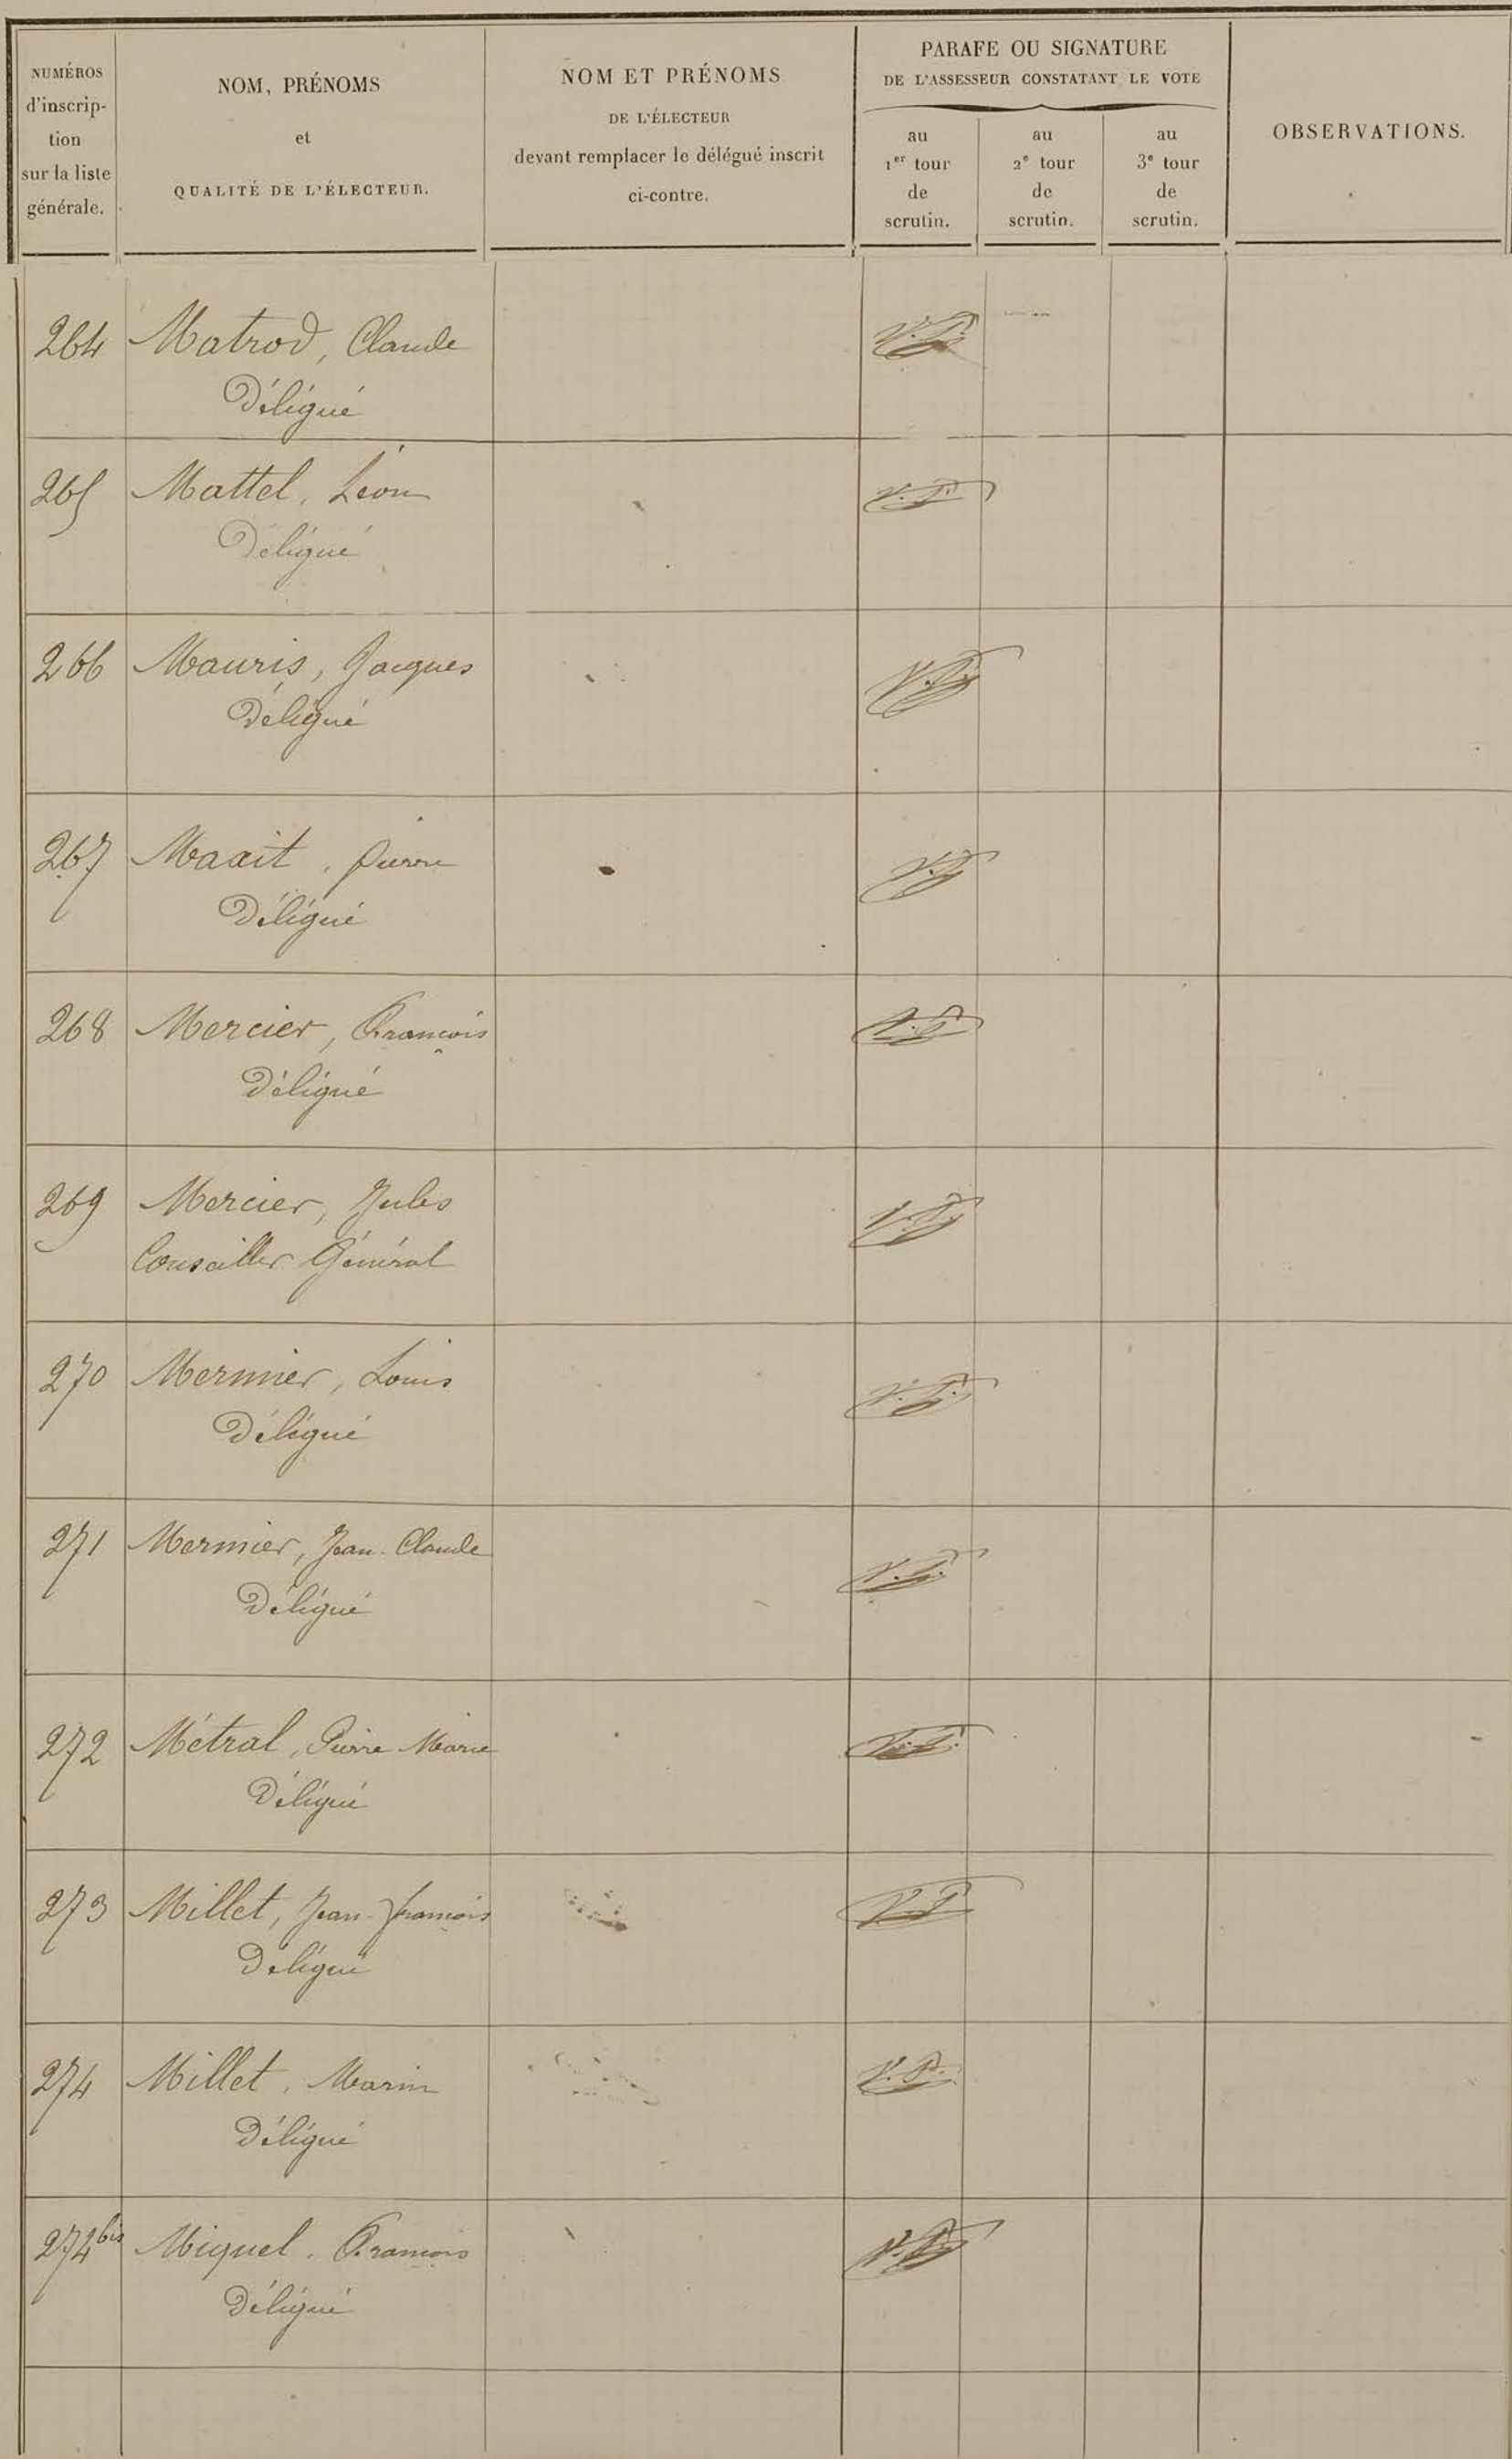 NUMÉROS
d'inscrip-
tion
sur la liste
générale.
NOM, PRÉNOMS
et
QUALITÉ DE L'ÉLECTEUR.
NOM ET PRÉNOMS
DE L'ÉLECTEUR
devant remplacer le délégué inscrit
ci-contre.
PARAFE OU SIGNATURE
DE L'ASSESSEUR CONSTATANT LE VOTE
au
1er tour
de
scrutin.
au
2e tour
de
scrutin.
au
3e tour
de
scrutin.
OBSERVATIONS.
264 Matrod, Claude
Délégué
265 Mattel, Léon
Délégué
266 Mauris, Jacques
Délégué
267 Maxit, Pierre
Délégué
268 Mercier, François
Délégué
269 Mercier, Jules
Conseiller Général
270 Mermier, Louis
Délégué
271 Mermier, Jean-Claude
Délégué
272 Métral, Pierre Marie
Délégué
273 Millet, Jean-François
Délégué
274 Millet, Marin
Délégué
274 bis Miquel, François
Délégué